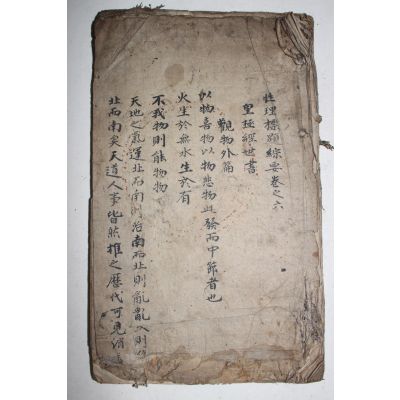 性理標題綜要卷之六
皇極經世書
觀物外篇
以物喜物以物悲物此發而中節者也
火生於無水生於有
不我物則能物物
天地之氣運北而南則治南而北則亂亂久則復
北而南矣天道人事皆然推之歷代可見消長